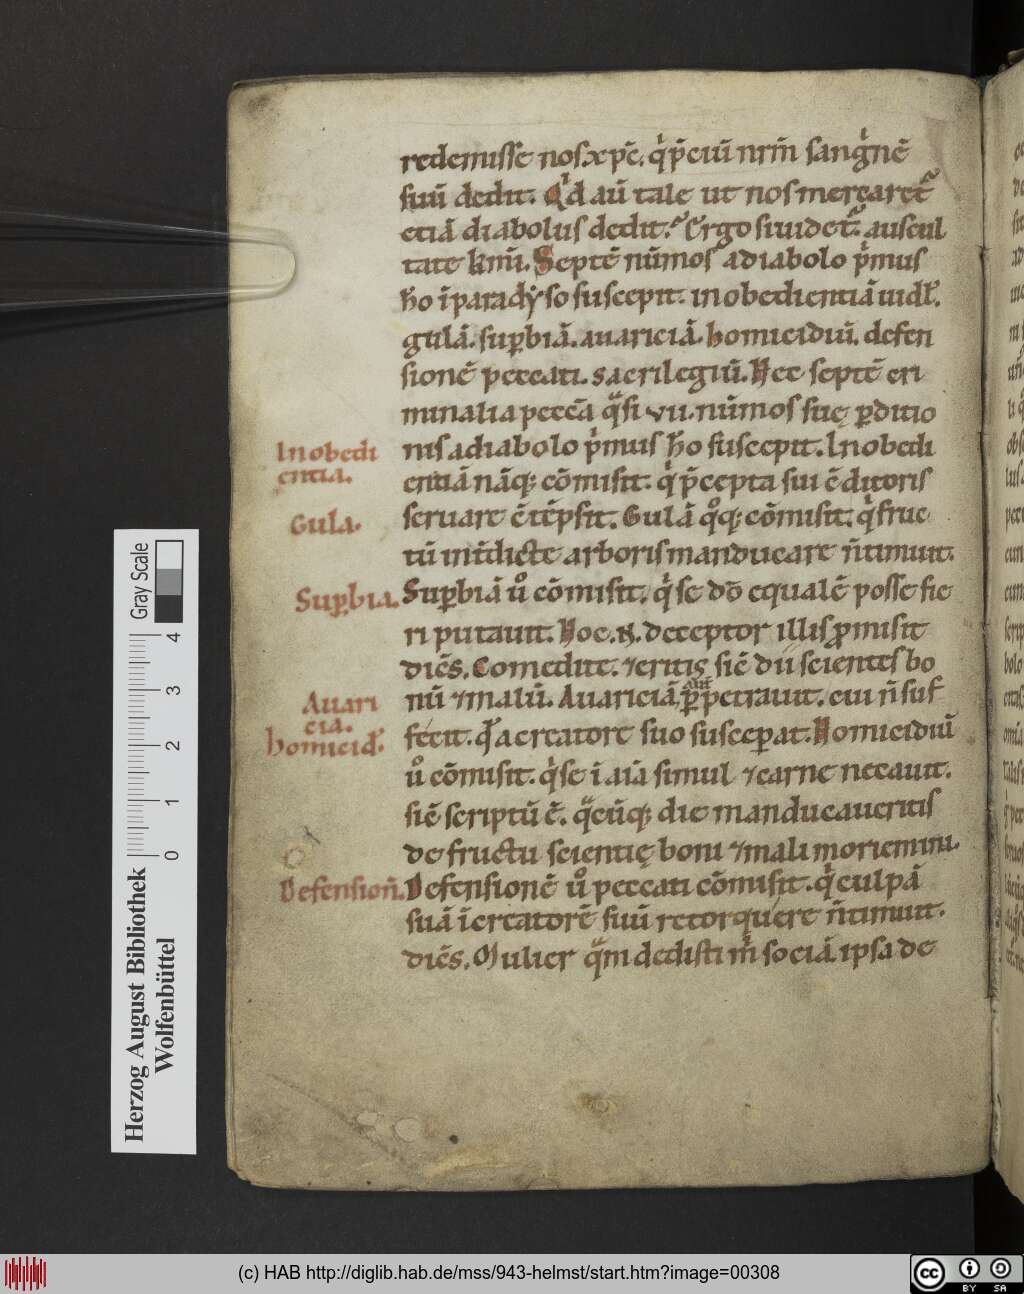 redemisse nos. xp̄c. q̍ p̄ciū nr̄m̄ sang̍nē
suū dedit. Q̍d aū tale ut nos mercaret᷑
etiā diabolus dedit? Ergo si uidet᷑. auscul
tate km̄i. Septē nūmos a diabolo p̍mus
ho ī paradẏso suscepit. inobedientiā uidł.
gulā. sup̱biā. auariciā. homicidiū. defen
sionē peccati. sacrilegiū. Hec septē cri
minalia peccā q̈si vii. nūmos suę p̱ditio
nis a diabolo p̍mus ho suscepit. Inobedi
entiā nāq; cōmisit. q̍ p̄cepta sui c̄ditoris
seruare c̄tēpsit. Gulā q̊q; cōmisit. q̍ fruc
tū int̄dicte arboris manducare n̄ timuit.
Sup̱biā ů cōmisit. q̍ se dō equalē posse fie
ri putauit. Hoc .n. deceptor illis ꝓmisit
dicēs. Comedite. ⁊ eritis sic̄ dii scientes bo
nū ⁊ malū. Auariciā p̱petrauit. cui n̄ suf
fecit. qđ a creatore suo suscep̱at. Homicidiū
ů cōmisit. q̍ se ī aīa simul ⁊ carne necauit.
sic̄ scriptū ē. q̈cūq; die manducaueritis
de fructu scientię boni ⁊ mali moriemini.
Defensionē ů peccati cōmisit. q̍ culpā
suā ī creatorē suū retorquere n̄ timuit.
dicēs. Mulier q̈m dedisti m̍ sociā. ipsa de
Inobedi
entia.
Gula.
Sup̱bia.
Auari
cia.
homicid̄.
Defension̄.
Herzog August Bibliothek
Wolfenbüttel
Gray Scale
0 1 2 3 4
(c) HAB http://diglib.hab.de/mss/943-helmst/start.htm?image=00308
cc BY SA